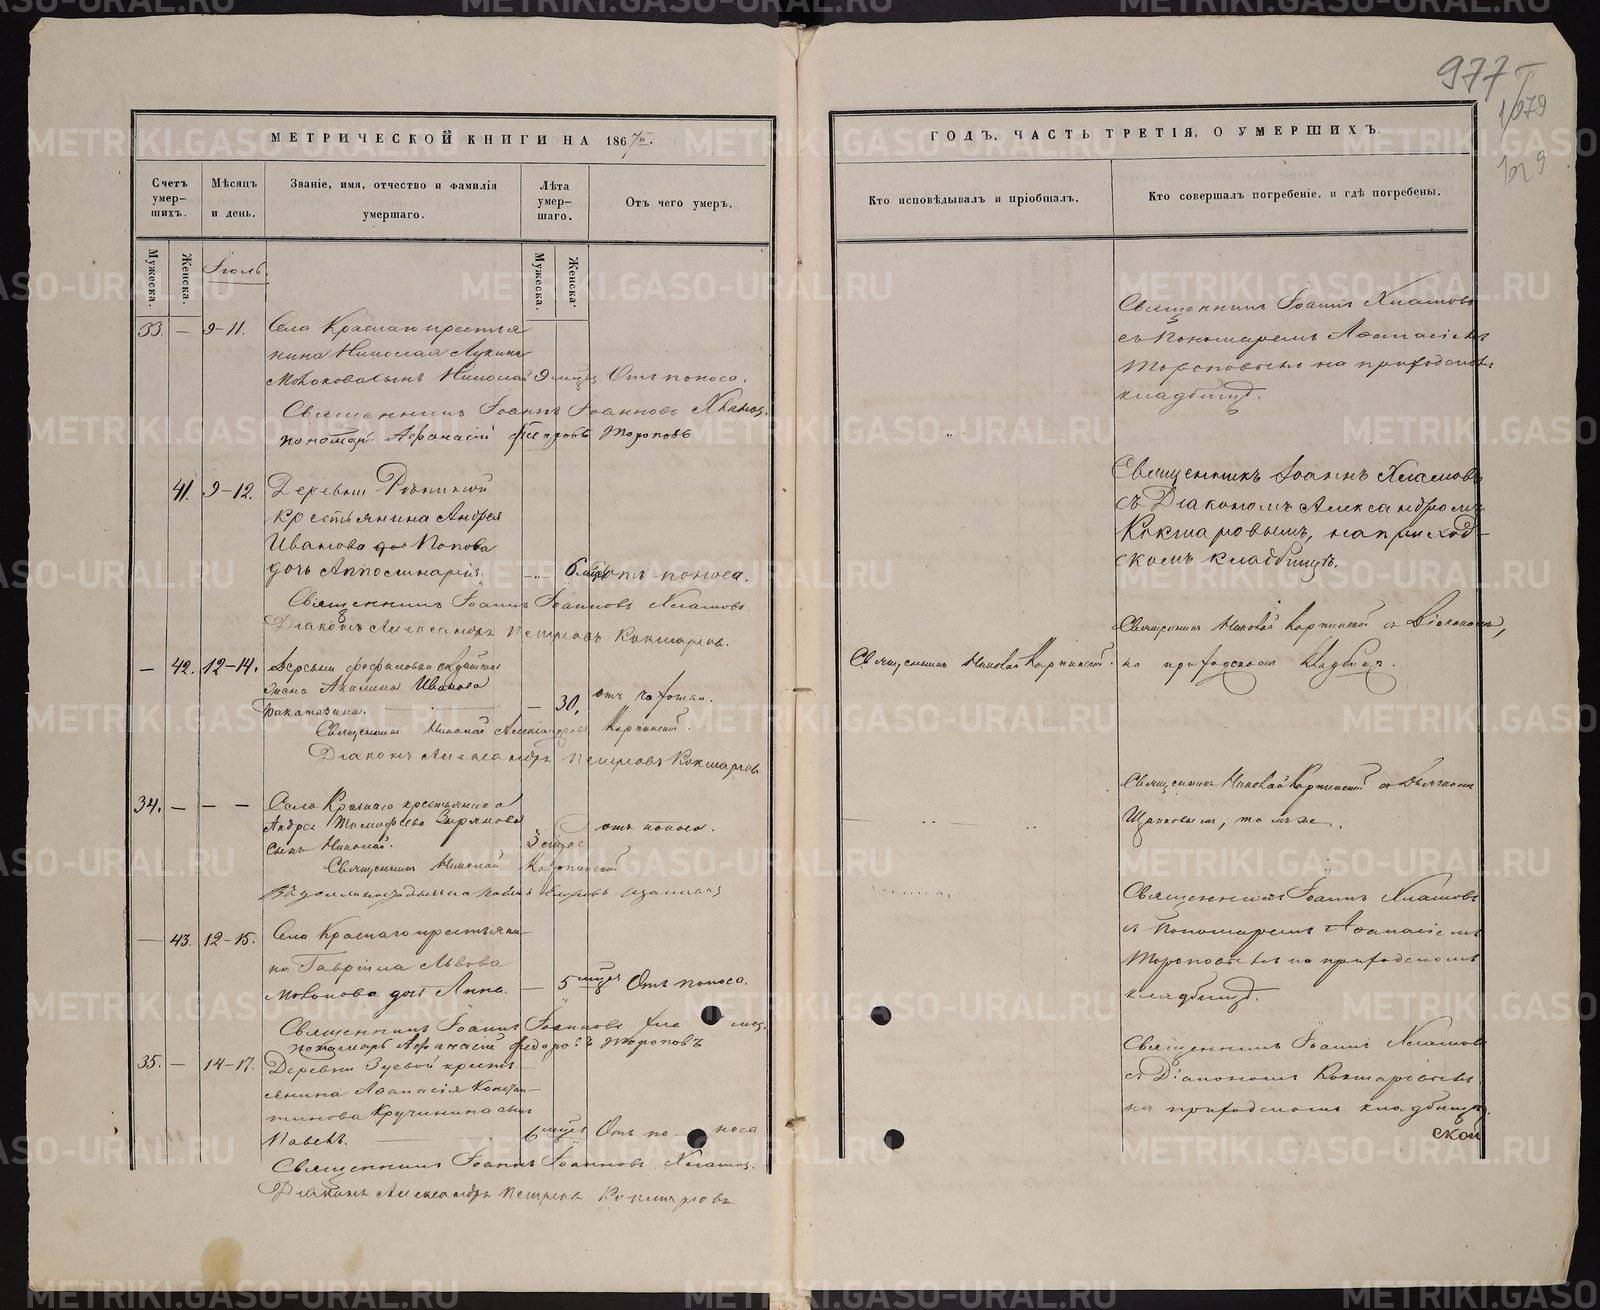 977
1079
1079
МЕТРИЧЕСКОЙ КНИГИ НА 1867й.
Счетъ умер-шихъ.
Мѣсяцъ и день.
Званіе, имя, отчество и фамилія умершаго.
Лѣта умер-шаго.
Отъ чего умеръ.
Мужеска.
Женска.
Іюль.
Мужеска.
Женска.
33. — 9-11. Села Краснаго крестья
нина Николая Лукина
сынъ Николай 9 мцев Отъ поноса.
Священникъ Іоаннъ Іоанновъ Хламов.
пономарь Афанасій Федоровъ Тороповъ
41. 9-12. Деревни
Крестьянина Андрея
Иванова Попова
дочь Апполинарія. 6 мцев отъ поноса.
Священникъ Іоаннъ Іоанновъ Хламовъ.
Діаконъ Александръ Петровъ Кокшаров.
— 42. 12-14. Деревни
жена Акилина Иванова
— 30. отъ чахотки.
Священникъ Николай Карпинскій.
Діаконъ Александръ Петровъ Кокшаров
34. — — — Села Краснаго крестьянина
Андрея Тимофѣева Зырянова
сынъ Николай. отъ поноса.
Священникъ Николай Карпинскій
— 43. 12-15. Села Краснаго крестьяни-
на Гавріила Львова
дочь Анна. — 5 мцев Отъ поноса.
Священникъ Іоаннъ Іоанновъ
пономарь Афанасій Федоровъ Тороповъ
35. — 14-17. Деревни Зуевой крест-
янина Афанасія Констан-
тинова Кручинина сынъ
Павелъ. 6 мцев Отъ поноса
Священникъ Іоаннъ Іоанновъ Хламов.
Діаконъ Александръ Петровъ Кокшаровъ.
ГОДЪ, ЧАСТЬ ТРЕТІЯ, О УМЕРШИХЪ.
Кто исповѣдывалъ и пріобщалъ.
Кто совершалъ погребеніе, и гдѣ погребены.
Священникъ Іоаннъ Хламовъ
съ Пономаремъ Афанасіемъ
Тороповымъ на приходскомъ
кладбищѣ.
Священникъ Іоаннъ Хламовъ
съ Діакономъ Александромъ
Кокшаровымъ, на приход-
скомъ кладбищѣ.
Священникъ Николай Карпинскій съ Діакономъ,
Священникъ Николай Карпинскій. на приходскомъ кладбищѣ.
Священникъ Николай Карпинскій съ Дьячкомъ
тамъ же.
Священникъ Іоаннъ Хламовъ
съ Пономаремъ Афанасіемъ
Тороповымъ на приходскомъ
кладбищѣ.
Священникъ Іоаннъ Хламовъ
съ Діакономъ Кокшаровымъ
на приходскомъ кладбищѣ.
ской
METRIKI.GASO-URAL.RU